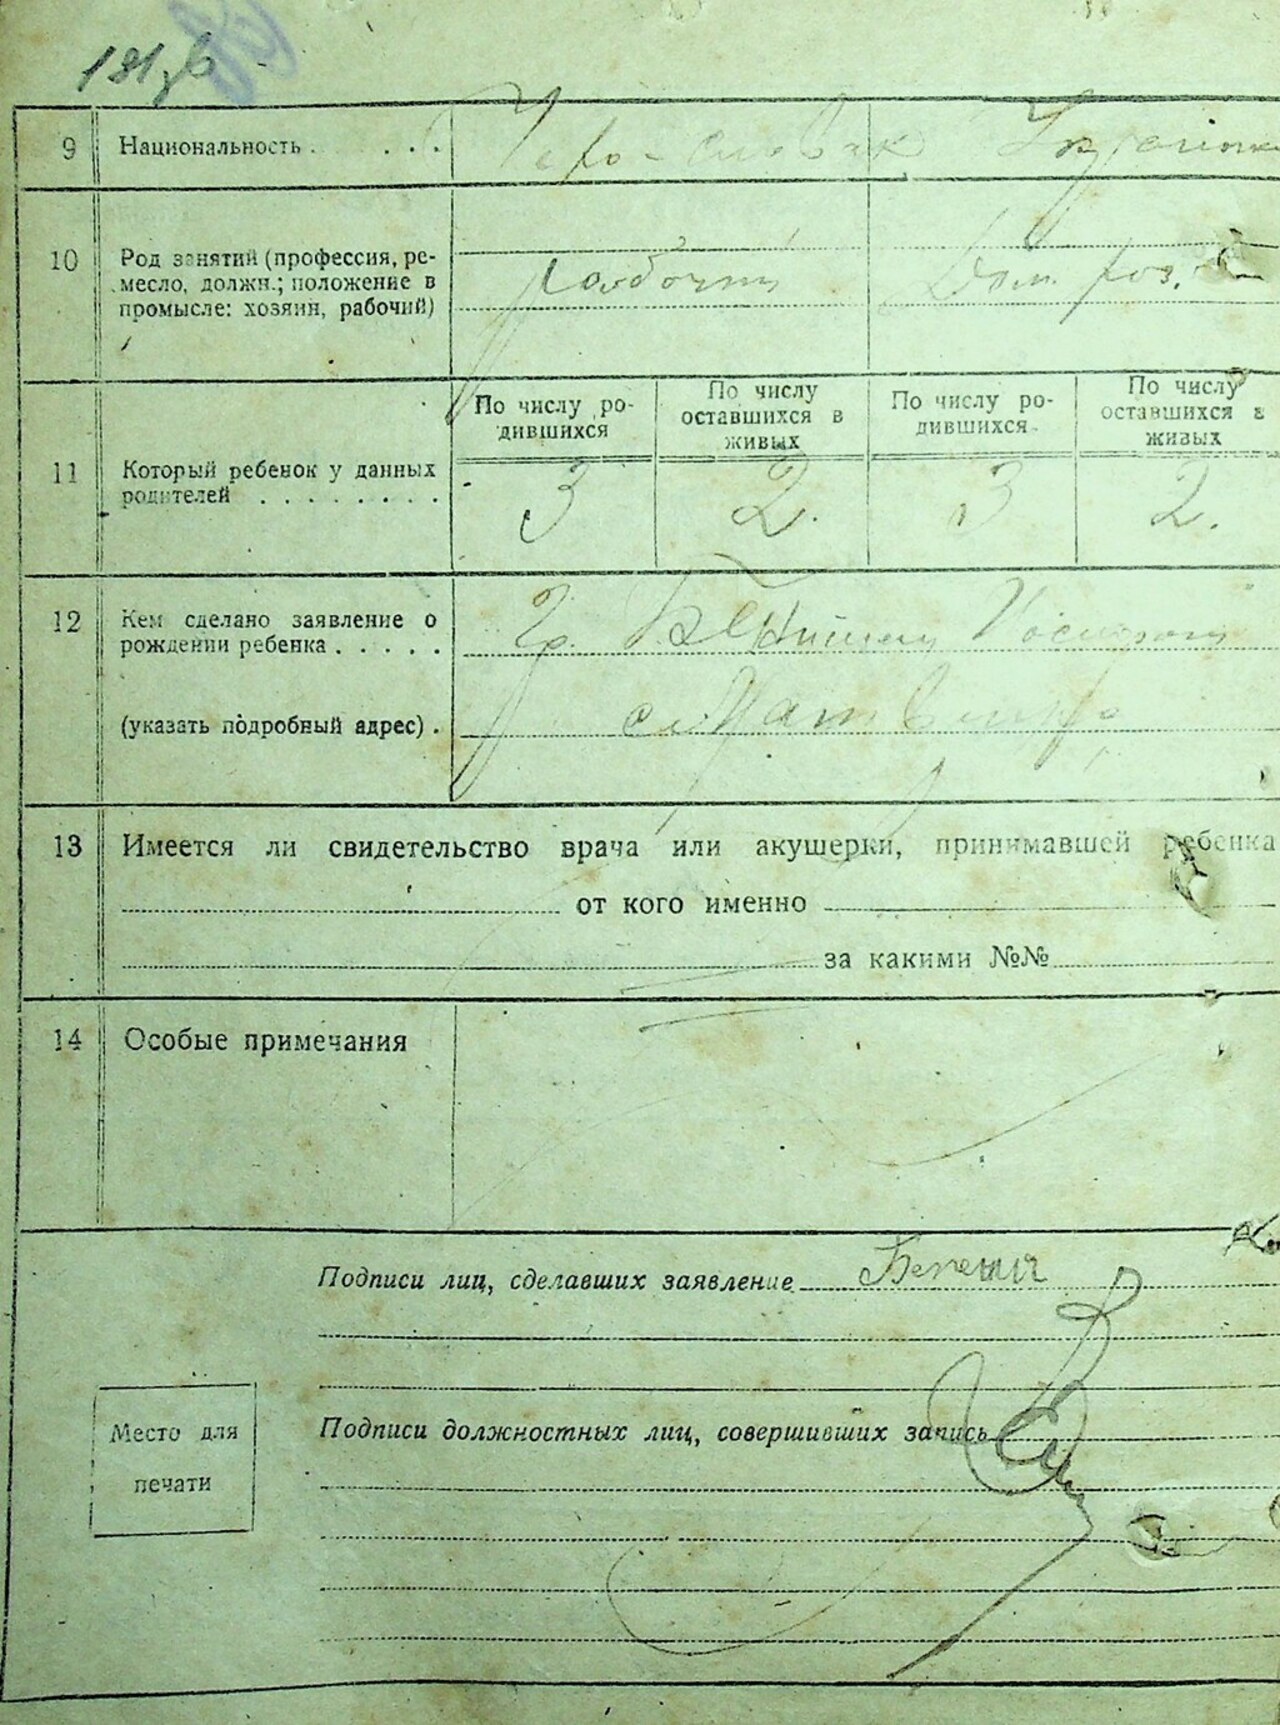 9 Национальность . . . . . Чехо-словак Українка
10 Род занятий (профессия, ре-
месло, должн.; положение в
промысле: хозяин, рабочий)
Рабочий Дом. хоз.
11 Который ребенок у данных
родителей . . . . . . . .
По числу ро-
дившихся
По числу
оставшихся в
живых
По числу ро-
дившихся
По числу
оставшихся в
живых
3 2. 3 2.
12 Кем сделано заявление о
рождении ребенка . . . . .
Гр.
(указать подробный адрес) .
13 Имеется ли свидетельство врача или акушерки, принимавшей ребенка
от кого именно
за какими №№
14 Особые примечания
Подписи лиц, сделавших заявление
Место для
печати
Подписи должностных лиц, совершивших запись